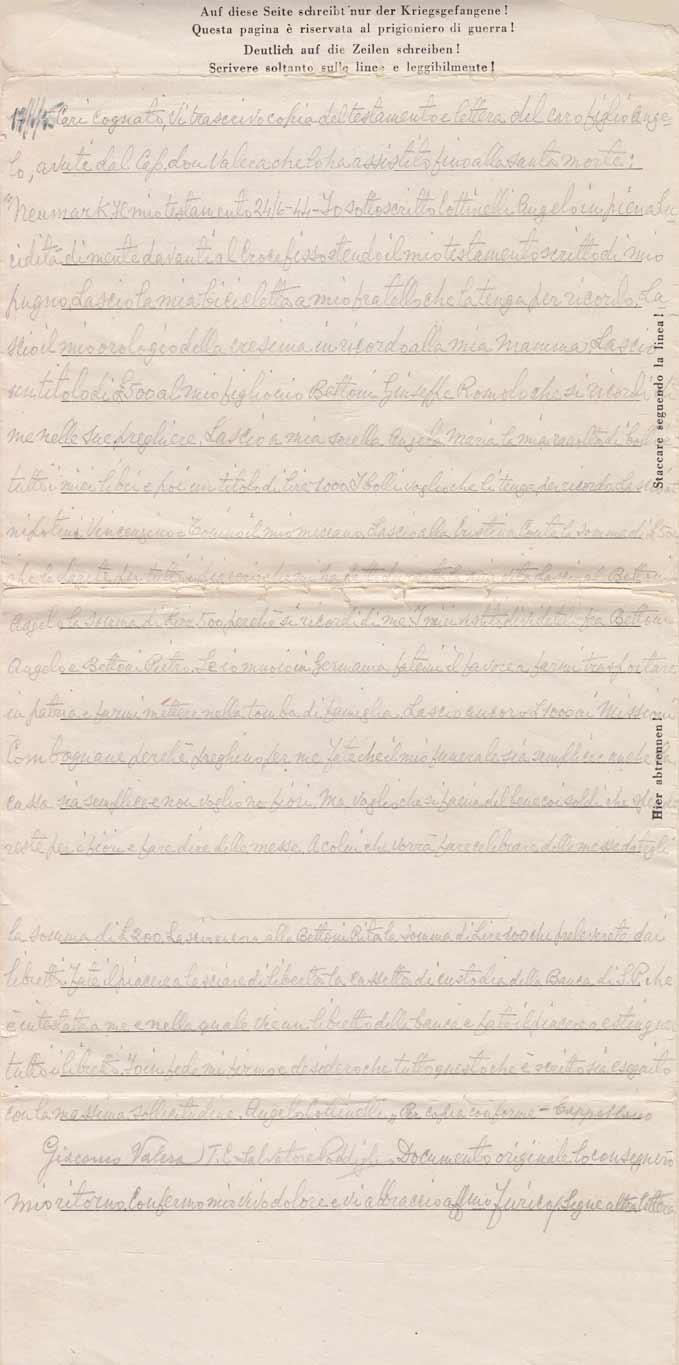 Auf diese Seite schreibt nur der Kriegsgefangene!
Questa pagina è riservata al prigioniero di guerra!
Deutlich auf die Zeilen schreiben!
Scrivere soltanto sulle linee e leggibilmente!
Cari cognati, Vi trascrivo copia del testamento e lettera del caro figlio Ange-
lo, avute dal Cap. don Valera che lo ha assistito fino alla santa morte:
"Neumark Il mio testamento 24/6-44- Io sottoscritto Cottinelli Angelo in piena lu-
cidità di mente davanti al Crocefisso stendo il mio testamento scritto di mio
pugno. Lascio la mia bicicletta a mio fratello che la tenga per ricordo. La-
scio il mio orologio della cresima in ricordo alla mia Mamma. Lascio
un titolo di £500 al mio figliocio Bettoni Giuseppe Romolo che si ricordi di
me nelle sue preghiere. Lascio a mia sorella Angela Maria la mia racolta di bolli
tutti i miei libri e poi un titolo di lire 1000 I bolli voglio che li tenga per ricordo. Lascio ai
nipotini Vincenzino e Tonino il mio meccano. Lascio alla Cristina Conta la somma di £500
che le darete per tutti i piaceri che mi ha Lascio al Bettoni
Angelo la somma di Lire 500 perchè si ricordi di me. I miei vestiti divideteli fra Bettoni
Angelo e Bettoni Pietro. Se io muoio in Germania fatemi il favore a farmi trasportare
in patria e farmi mettere nella tomba di famiglia. Lascio ancora £1000 ai Missioni
Comboniane perchè preghino per me. Fate che il mio funerale sia semplice anche la
cassa sia semplice e non voglio no fiori. Ma voglio che si facia del bene coi soldi che spende-
reste per i fiori e fare dire delle messe. A colui che vorrà fare celebrare delle messe dategli
la somma di £200. Lascio ancora alla Bettoni Rita la somma di Lire 200 che preleverete dai
libretti. Fate il piacere a lasciare di libertà la cassetta di custodia della Banca di S.P. che
è intestata a me e nella quale vi è un libretto della banca e fate il piacere a estinguere
tutti i libretti. Io in fede mi firmo e desidero che tutto questo che è scritto sia eseguito
con la massima sollecitudine. Angelo Cottinelli" Per copia conforme - Cappellano
Giacomo Valera T.C. Salvatore Documento originale lo consegnerò
mio ritorno. Confermo mio vivo dolore e vi abbraccio affmo Enrico. Segue altra lettera
Staccare seguendo la linea!
Hier abtrennen!